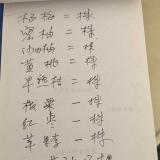 杨梅 = 株
蜜柚 = 株
沙田柚 = 株
黄桃 = 株
早熟桔 = 株
板栗 一株
红枣 一株
苹 一株